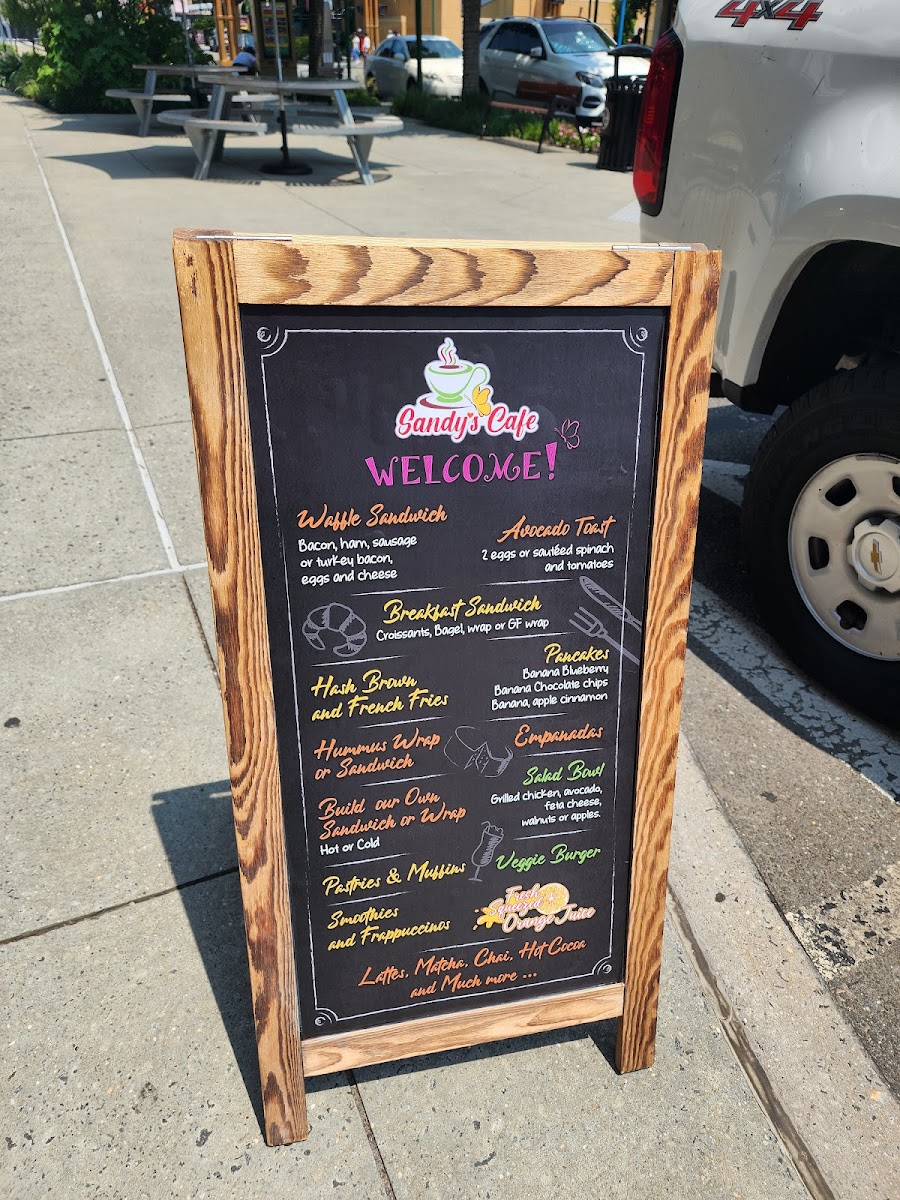 4x4
Sandy's Cafe
WELCOME!
Waffle Sandwich
Bacon, ham, sausage
or turkey bacon,
eggs and cheese
Avocado Toast
2 eggs or sautéed spinach
and tomatoes
Breakfast Sandwich
Croissants, Bagel, wrap or GF wrap
Hash Brown
and French Fries
Pancakes
Banana Blueberry
Banana Chocolate chips
Banana, apple cinnamon
Hummus Wrap
or Sandwich
Empanadas
Build our Own
Sandwich or Wrap
Hot or Cold
Salad Bowl
Grilled chicken, avocado,
feta cheese,
walnuts or apples.
Pastries & Muffins
Veggie Burger
Smoothies
and Frappuccinos
Fresh
Squeezed
Orange Juice
Lattes, Matcha, Chai, Hot Cocoa
and Much more ...